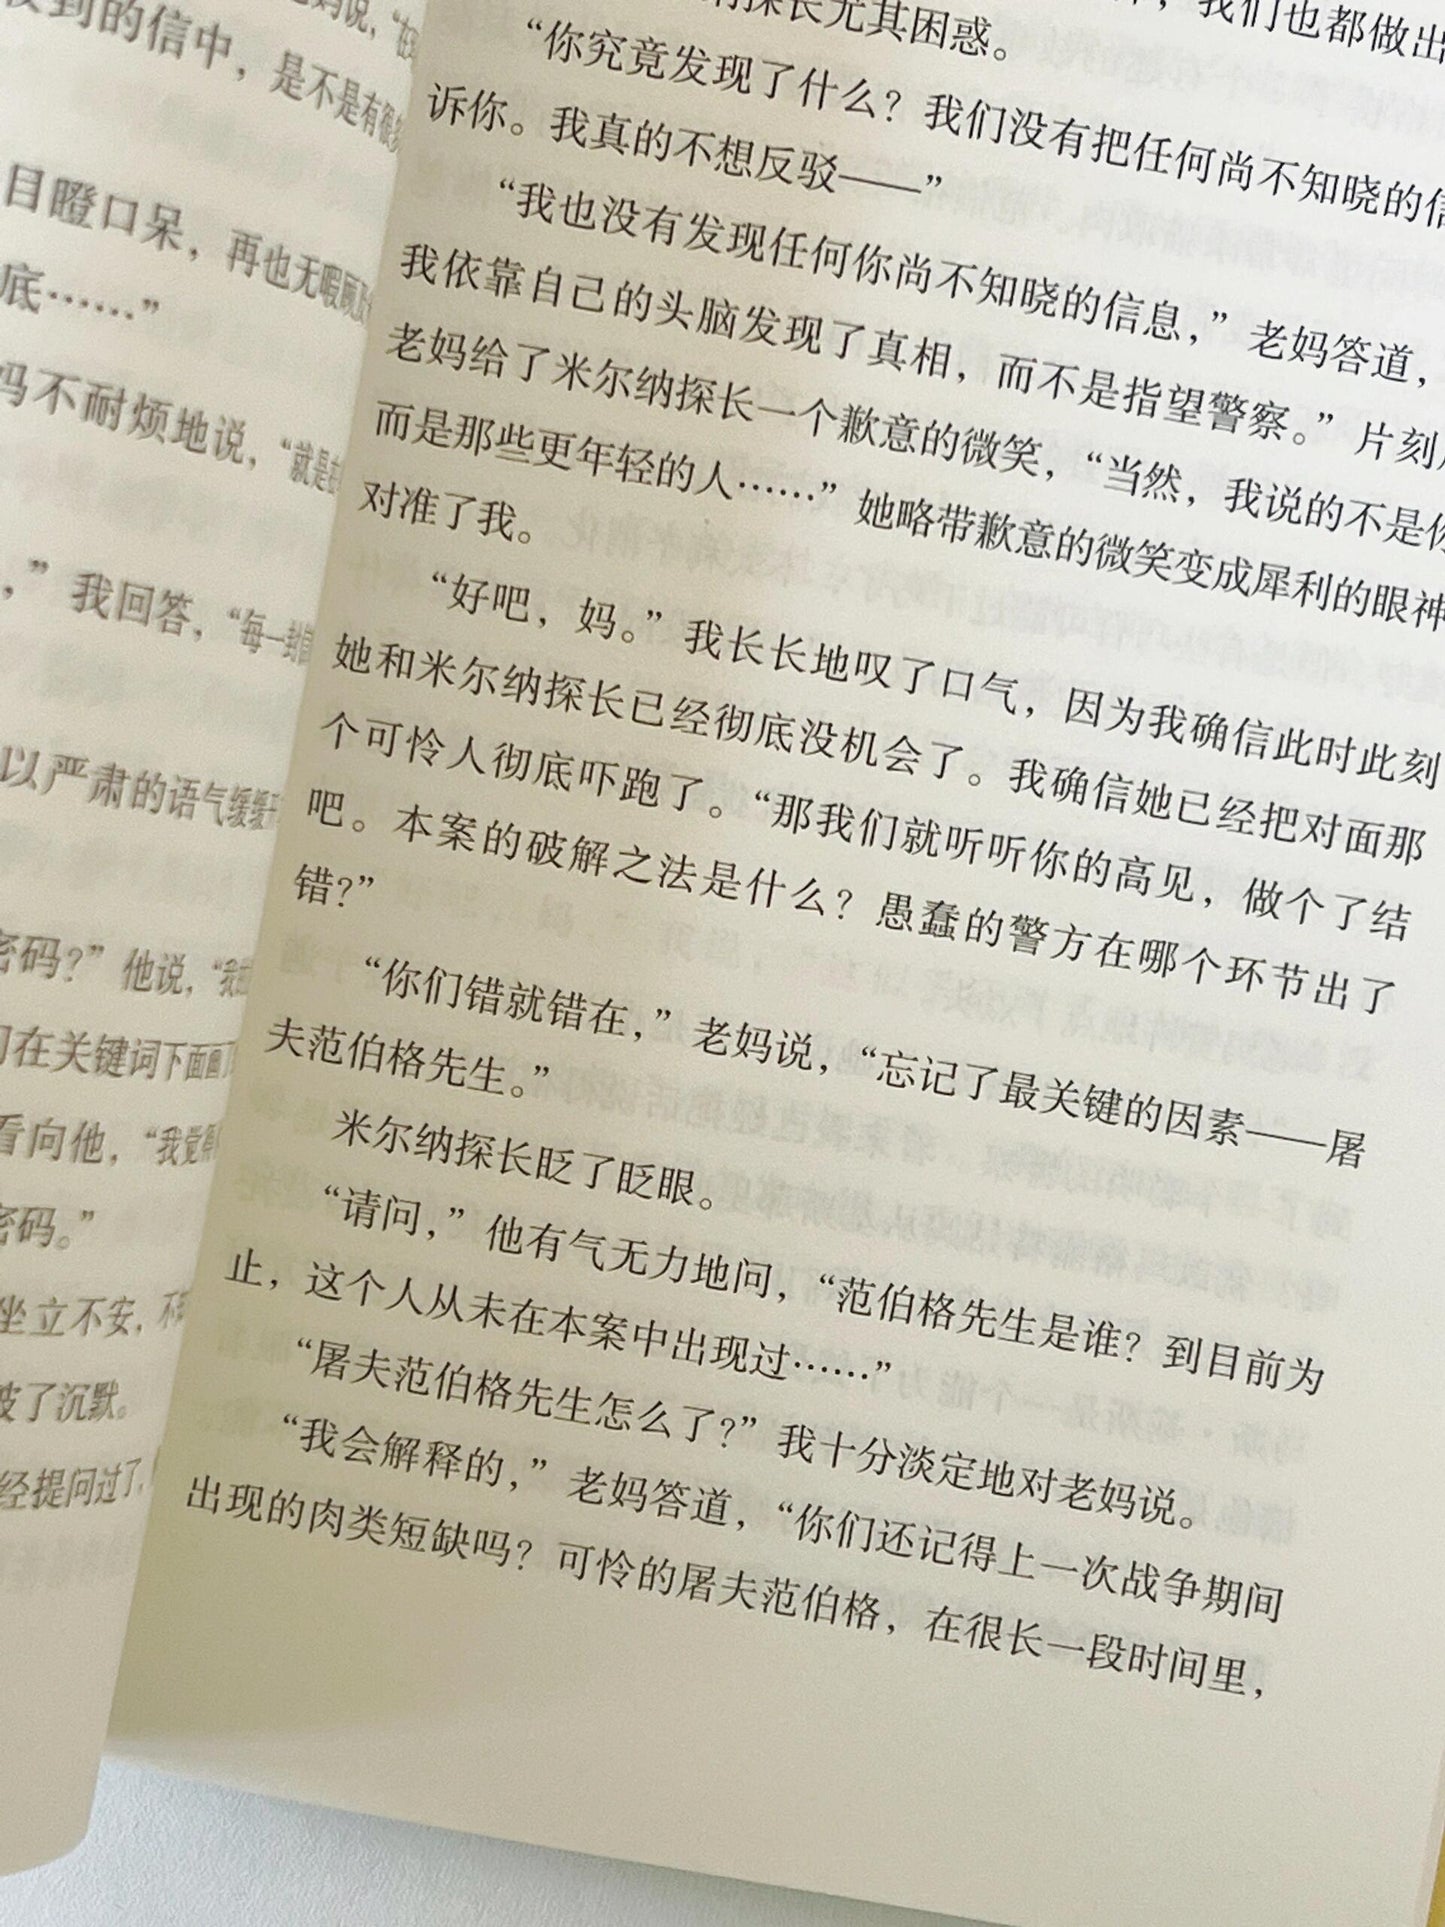 收到的信中，是不是有很
目瞪口呆，再也无暇顾及
底……”
妈不耐烦地说，“就是
，”我回答，“每一封
以严肃的语气缓缓
密码？”他说，“我
们在关键词下面画
看向他，“我觉得
密码。”
坐立不安，不
破了沉默。
经提问过了，
探长尤其困惑。
我们也都做出
“你究竟发现了什么？我们没有把任何尚不知晓的信
诉你。我真的不想反驳——”
“我也没有发现任何你尚不知晓的信息，”老妈答道，
我依靠自己的头脑发现了真相，而不是指望警察。”片刻
老妈给了米尔纳探长一个歉意的微笑，“当然，我说的不是你
而是那些更年轻的人……”她略带歉意的微笑变成犀利的眼神
对准了我。
“好吧，妈。”我长长地叹了口气，因为我确信此时此刻
她和米尔纳探长已经彻底没机会了。我确信她已经把对面那
个可怜人彻底吓跑了。“那我们就听听你的高见，做个了结
吧。本案的破解之法是什么？愚蠢的警方在哪个环节出了
错？”
“你们错就错在，”老妈说，“忘记了最关键的因素——屠
夫范伯格先生。”
米尔纳探长眨了眨眼。
“请问，”他有气无力地问，“范伯格先生是谁？到目前为
止，这个人从未在本案中出现过……”
“屠夫范伯格先生怎么了？”我十分淡定地对老妈说。
“我会解释的，”老妈答道，“你们还记得上一次战争期间
出现的肉类短缺吗？可怜的屠夫范伯格，在很长一段时间里，